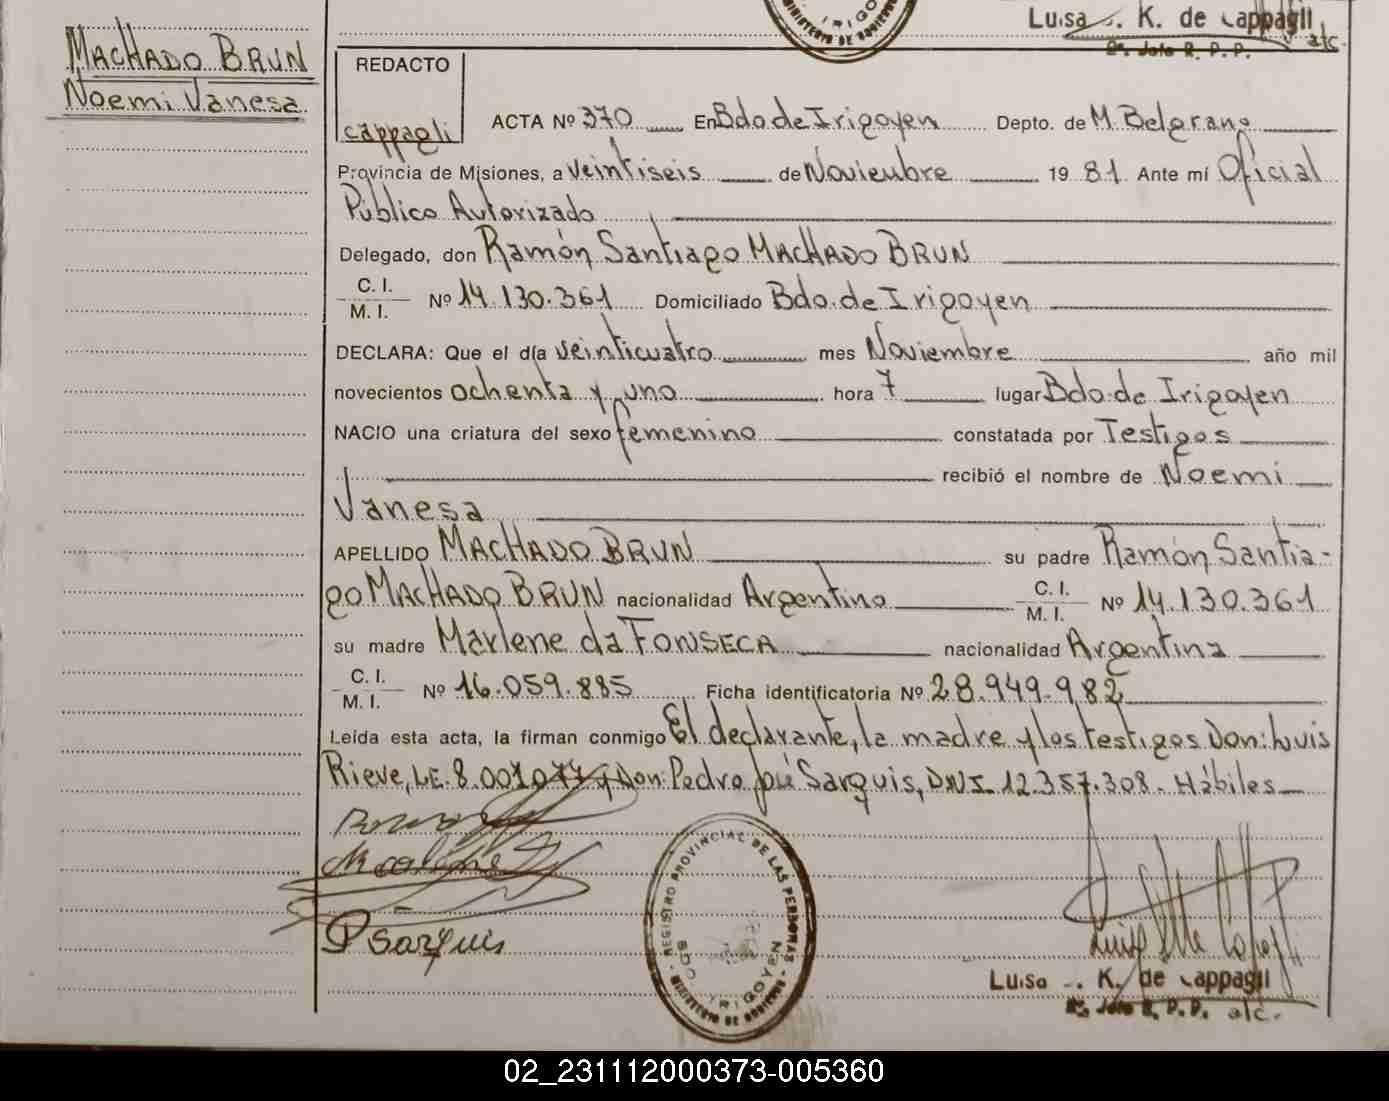 Luisa . K. de Cappagli
2a. Jefe R. P. P. a/c.
MINISTERIO DE GOBIERNO
MACHADO BRUN
Noemi Vanesa
REDACTO
cappagli
ACTA Nº 370 En Bdo de Irigoyen Depto. de M. Belgrano
Provincia de Misiones, a veintiseis de Noviembre 19 81. Ante mí Oficial
Público Autorizado
Delegado, don Ramón Santiago MACHADO BRUN
C. I.
M. I. Nº 14.130.361 Domiciliado Bdo. de Irigoyen
DECLARA: Que el día veinticuatro mes Noviembre año mil
novecientos ochenta y uno hora 7 lugar Bdo. de Irigoyen
NACIO una criatura del sexo femenino constatada por Testigos
recibió el nombre de Noemi
Vanesa
APELLIDO MACHADO BRUN su padre Ramón Santia-
go MACHADO BRUN nacionalidad Argentino C. I.
M. I. Nº 14.130.361
su madre Marlene da FONSECA nacionalidad Argentina
C. I.
M. I. Nº 16.059.885 Ficha identificatoria Nº 28.949.982
Leída esta acta, la firman conmigo El declarante, la madre y los testigos Don: Luis
Rieve, L.E. 8.001.077 y Don: Pedro José Sarquis, DNI. 12.357.308. Hábiles
Marlene
P Sarquis
REGISTRO PROVINCIAL DE LAS PERSONAS
BDO. IRIGOYEN
MINISTERIO DE GOBIERNO
Luisa . K. de Cappagli
2a. Jefe R. P. P. a/c.
02_231112000373-005360